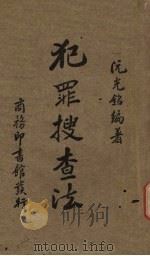 阮光銘編著
犯罪搜查法
商務印書館發行
www.duxiu.com